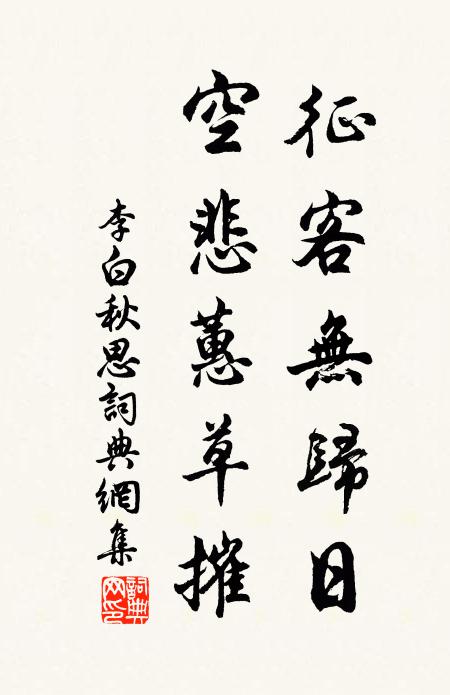 征客無歸日
空悲蕙草摧
李白秋思詞典網集
詞典网印